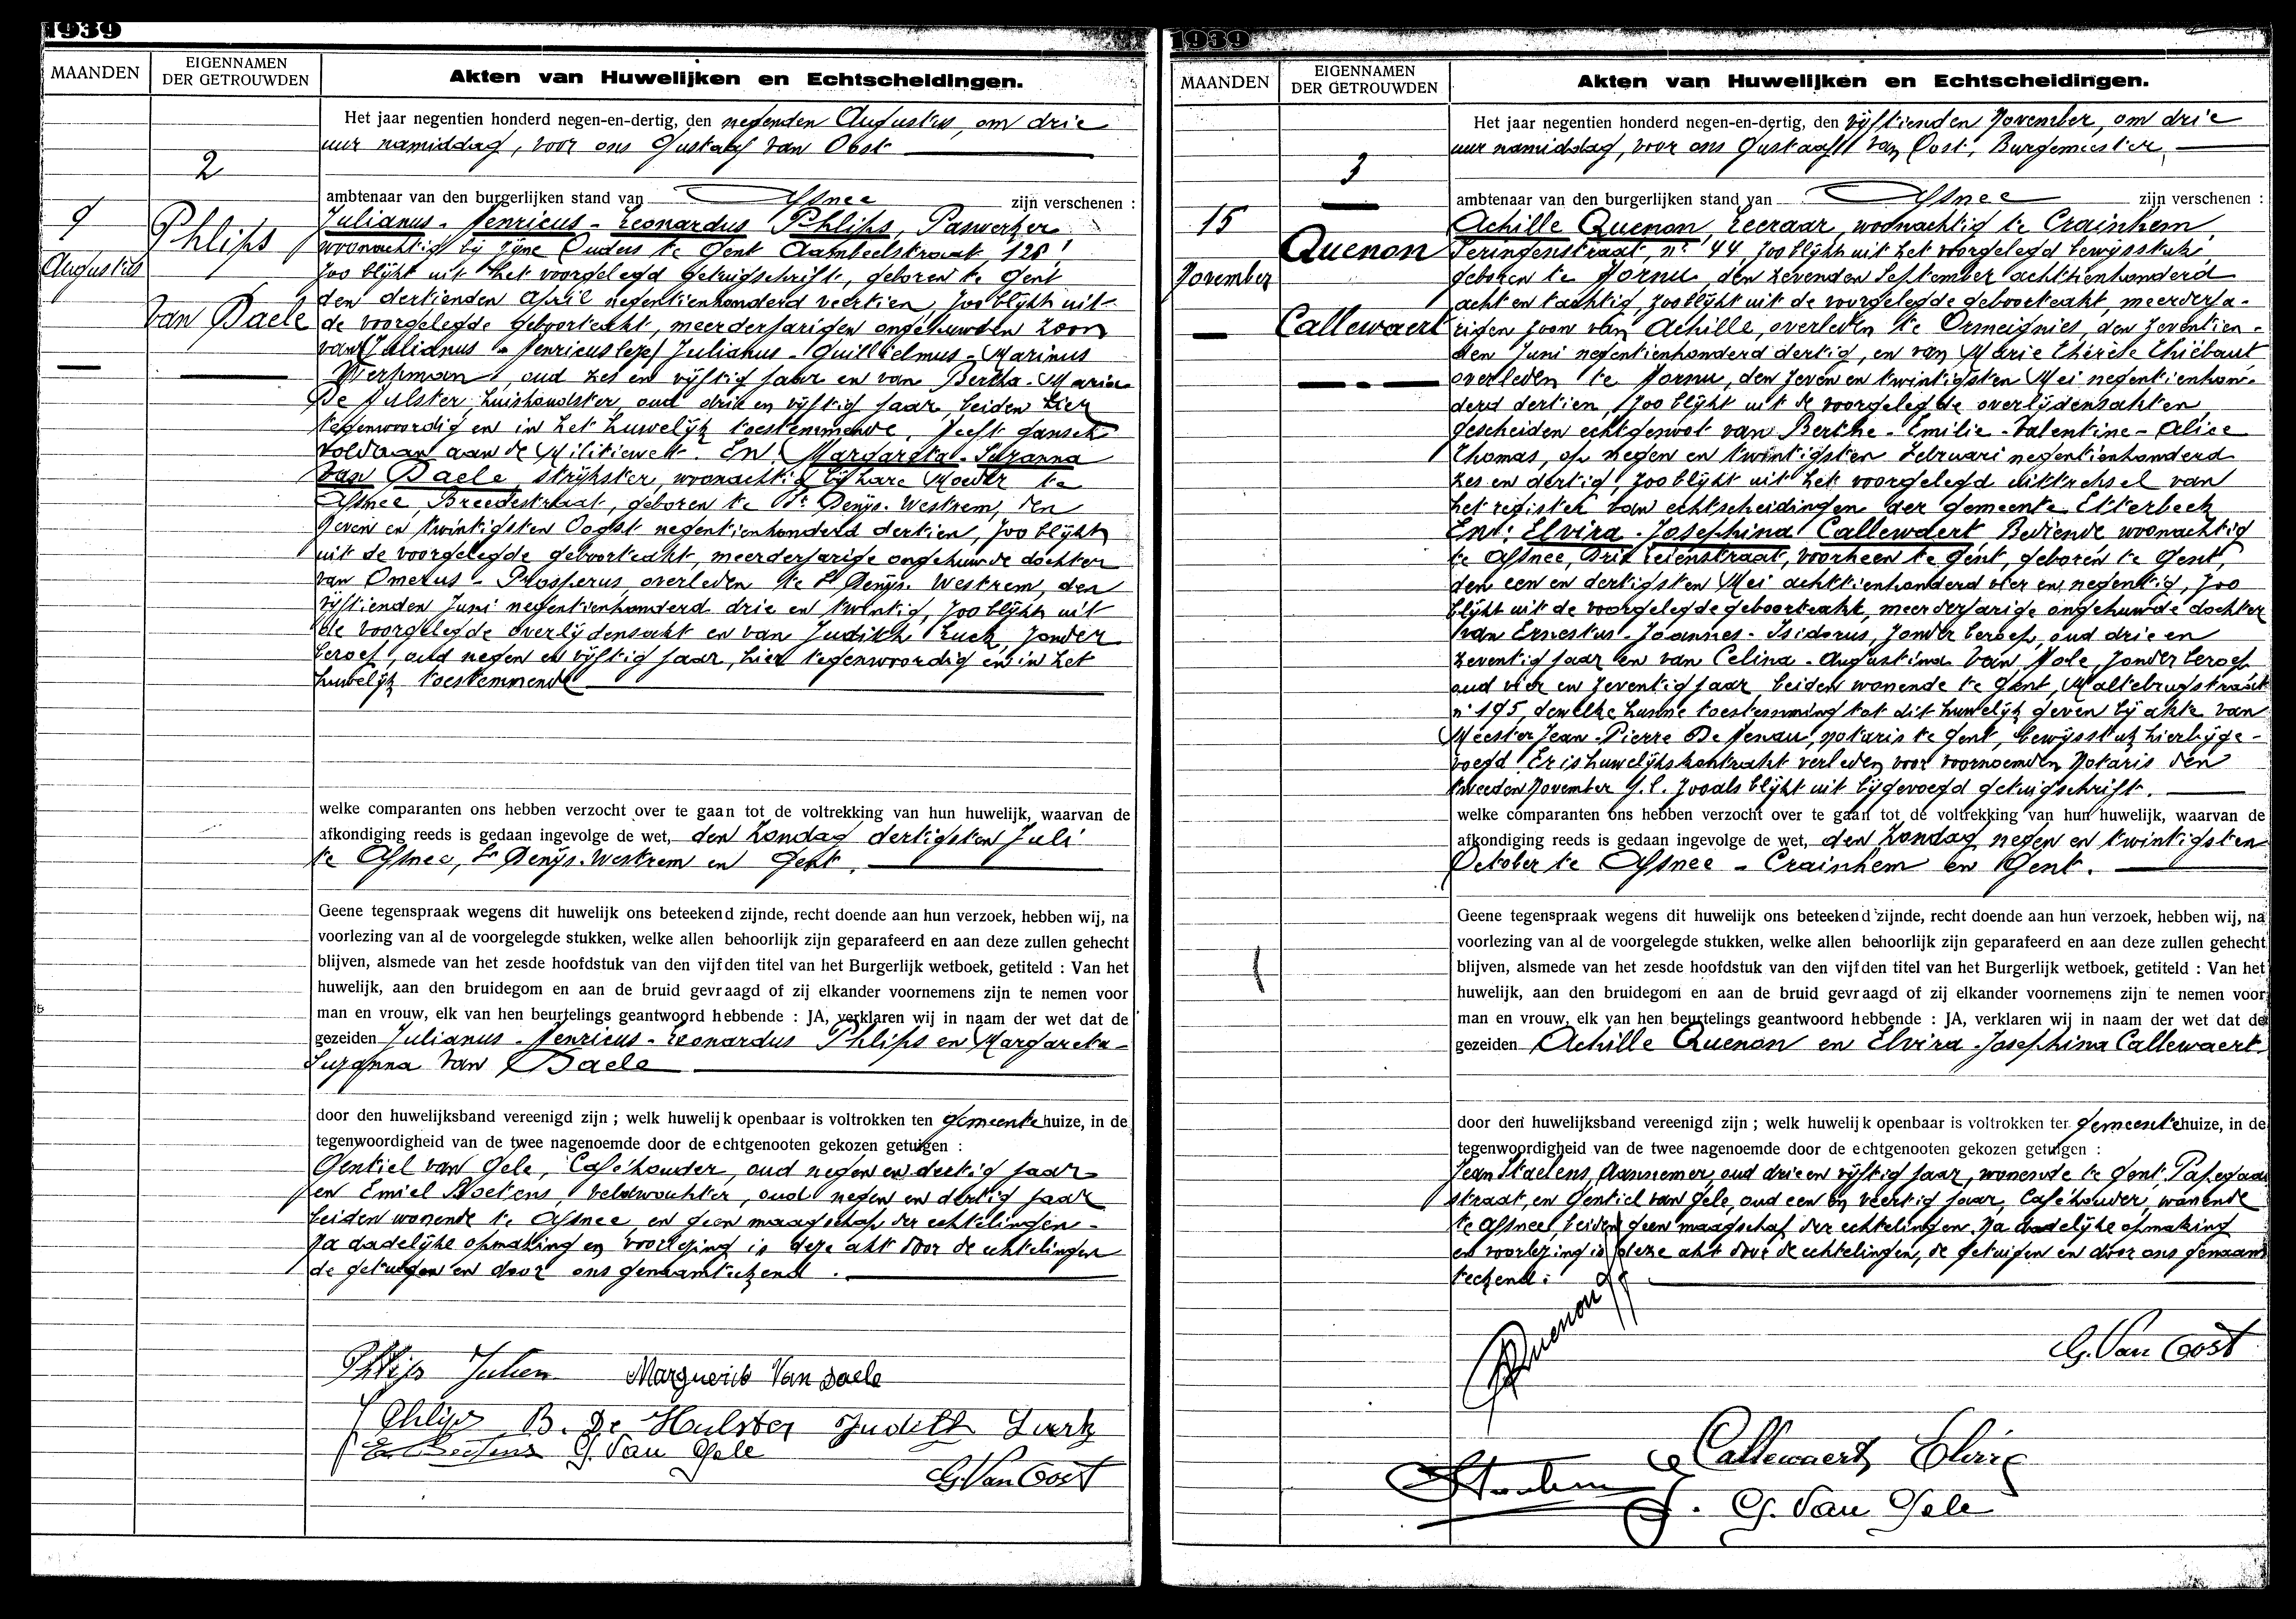 1939
MAANDEN
EIGENNAMEN
DER GETROUWDEN
Akten van Huwelijken en Echtscheidingen.
2
9
Augustus
Phlips
Van Daele
Het jaar negentien honderd negen-en-dertig, den negenden Augustus, om drie
uur namiddag, voor ons Gustaaf Van Oost
ambtenaar van den burgerlijken stand van Afsnee zijn verschenen :
Julianus - Henricus - Leonardus Phlips, Paswerker
woonachtig bij zijne Ouders te Gent Aambeeldstraat, 128,
zoo blijkt uit het voorgelegd getuigschrift, geboren te Gent
den dertienden April negentienhonderd veertien, zoo blijkt uit
de voorgelegde geboorteakt, meerderjarigen ongehuwden zoon
van (Julianus - Henricus leze) Julianus - Guillielmus - Marinus
Werkman, oud zes en vijftig jaar en van Bertha - Maria
De Hulster, huishoudster, oud drie en vijftig jaar, beiden hier
tegenwoordig en in het huwelijk toestemmende, heeft gansch
voldaan aan de Militiewet. En Margareta - Suzanna
Van Daele, strijkster, woonachtig bij hare Moeder te
Afsnee, Breedestraat, geboren te St Denijs-Westrem, den
zeven en twintigsten Oogst negentienhonderd dertien, zoo blijkt
uit de voorgelegde geboorteakt, meerderjarige ongehuwde dochter
van Omerus - Prosperus, overleden te St Denijs-Westrem, den
vijftienden Juni negentienhonderd drie en twintig, zoo blijkt uit
de voorgelegde overlijdensakt en van Judith Luck, zonder
beroep, oud negen en vijftig jaar, hier tegenwoordig en in het
huwelijk toestemmende
welke comparanten ons hebben verzocht over te gaan tot de voltrekking van hun huwelijk, waarvan de
afkondiging reeds is gedaan ingevolge de wet, den Zondag dertigsten Juli
te Afsnee, St Denijs-Westrem en Gent.
Geene tegenspraak wegens dit huwelijk ons beteekend zijnde, recht doende aan hun verzoek, hebben wij, na
voorlezing van al de voorgelegde stukken, welke allen behoorlijk zijn geparafeerd en aan deze zullen gehecht
blijven, alsmede van het zesde hoofdstuk van den vijfden titel van het Burgerlijk wetboek, getiteld : Van het
huwelijk, aan den bruidegom en aan de bruid gevraagd of zij elkander voornemens zijn te nemen voor
man en vrouw, elk van hen beurtelings geantwoord hebbende : JA, verklaren wij in naam der wet dat de
gezeiden Julianus - Henricus - Leonardus Phlips en Margareta -
Suzanna Van Daele
door den huwelijksband vereenigd zijn ; welk huwelijk openbaar is voltrokken ten gemeentehuize, in de
tegenwoordigheid van de twee nagenoemde door de echtgenooten gekozen getuigen :
Gentiel Van Gele, Caféhouder, oud negen en dertig jaar
en Emiel Boetens, veldwachter, oud negen en dertig jaar
beiden wonende te Afsnee, en geen maagschap der echtelingen -
Na dadelijke opmaking en voorlezing is deze akt door de echtelingen
de getuigen en door ons genaamtekend.
Phlips Julien Marguerite Van Daele
Phlips B. De Hulster Judith Luck
G. Van Gele
G. Van Oost
1939
MAANDEN
EIGENNAMEN
DER GETROUWDEN
Akten van Huwelijken en Echtscheidingen.
3
15
November
Quenon
Callewaert
Het jaar negentien honderd negen-en-dertig, den vijftienden November, om drie
uur namiddag, voor ons Gustaaf Van Oost, Burgemeester,
ambtenaar van den burgerlijken stand van Afsnee zijn verschenen :
Achille Quenon, Leeraar, woonachtig te Crainhem,
Seringenstraat, nr 44, zoo blijkt uit het voorgelegd bewijsstuk,
geboren te Hornu, den zevenden September achttienhonderd
acht en tachtig, zoo blijkt uit de voorgelegde geboorteakt, meerderja-
rigen zoon van Achille, overleden te Ormeignies, den zeventien-
den Juni negentienhonderd dertig, en van Marie Thérèse Thiébaut
overleden te Hornu, den zeven en twintigsten Mei negentienhon-
derd dertien, zoo blijkt uit de voorgelegde overlijdensakten,
gescheiden echtgenoot van Berthe - Emilie - Valentine - Alice
Thomas, op negen en twintigsten Februari negentienhonderd
zes en dertig, zoo blijkt uit het voorgelegd uittreksel van
het register van echtscheidingen der gemeente Etterbeek
En: Elvira - Josephina Callewaert, Bediende woonachtig
te Afsnee, Drie Leienstraat, voorheen te Gent, geboren te Gent,
den een en dertigsten Mei achttienhonderd vier en negentig, zoo
blijkt uit de voorgelegde geboorteakt, meerderjarige ongehuwde dochter
van Ernestus - Joannes - Isidorus, zonder beroep, oud drie en
zeventig jaar en van Celina - Augustina Van Hole, zonder beroep
oud vier en zeventig jaar, beiden wonende te Gent, Maltebrugstraat
nr 195, dewelke hunne toestemming tot dit huwelijk geven bij akte van
Meester Jean - Pierre De Henau, notaris te Gent, bewijsstuk hierbijge-
voegd. Er is huwelijkskontrakt verleden voor voornoemden Notaris den
tweeden November j.l. zooals blijkt uit bijgevoegd getuigschrift.
welke comparanten ons hebben verzocht over te gaan tot de voltrekking van hun huwelijk, waarvan de
afkondiging reeds is gedaan ingevolge de wet, den Zondag negen en twintigsten
October te Afsnee - Crainhem en Gent.
Geene tegenspraak wegens dit huwelijk ons beteekend zijnde, recht doende aan hun verzoek, hebben wij, na
voorlezing van al de voorgelegde stukken, welke allen behoorlijk zijn geparafeerd en aan deze zullen gehecht
blijven, alsmede van het zesde hoofdstuk van den vijfden titel van het Burgerlijk wetboek, getiteld : Van het
huwelijk, aan den bruidegom en aan de bruid gevraagd of zij elkander voornemens zijn te nemen voor
man en vrouw, elk van hen beurtelings geantwoord hebbende : JA, verklaren wij in naam der wet dat de
gezeiden Achille Quenon en Elvira - Josephina Callewaert.
door den huwelijksband vereenigd zijn ; welk huwelijk openbaar is voltrokken ter gemeentehuize, in de
tegenwoordigheid van de twee nagenoemde door de echtgenooten gekozen getuigen :
Jean Staelens, Aannemer, oud drie en vijftig jaar, wonende te Gent, Papegaai
straat, en Gentiel Van Gele, oud een en veertig jaar, Caféhouder, wonende
te Afsnee, beiden geen maagschap der echtelingen. Na dadelijke opmaking
en voorlezing is deze akt door de echtelingen, de getuigen en door ons genaam
tekend:
Quenon
G. Van Oost
Callewaert Elvire
G. Van Gele